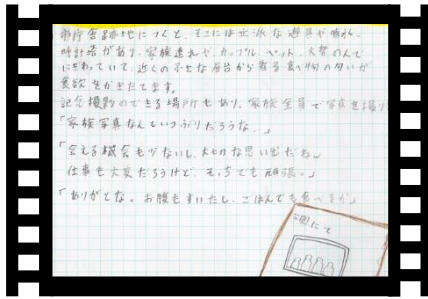 市庁舎跡地につくと、そこには立派な遊具や噴水、
時計塔があり、家族連れや、カップル、ペット、大勢の人で
にぎわっていて、近くの小さな屋台から香る食べ物の匂いが
食欲をかきたてます。
記念撮影のできる場所もあり、家族全員で写真を撮り
「家族写真なんていつぶりだろうな。」
「会える機会も少ないし、大切な思い出だね」
仕事も大変だろうけど、そっちでも頑張。」
「ありがとな。お腹もすいたし、ごはんでも食べるか」
にて